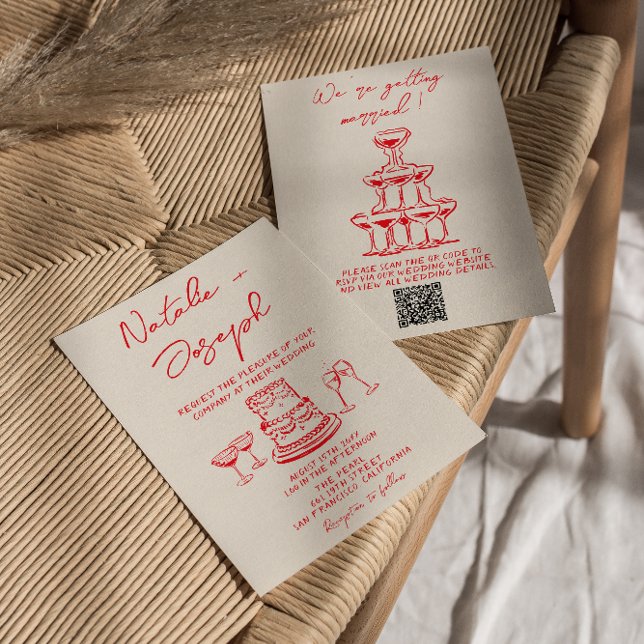 Natalie +
Joseph
REQUEST THE PLEASURE OF YOUR
COMPANY AT THEIR WEDDING
AUGUST 15TH 20XX
1:00 IN THE AFTERNOON
THE PEARL
601 19TH STREET
SAN FRANCISCO, CALIFORNIA
Reception to follow
We're getting
married!
PLEASE SCAN THE QR CODE TO
RSVP VIA OUR WEDDING WEBSITE
ND VIEW ALL WEDDING DETAILS.